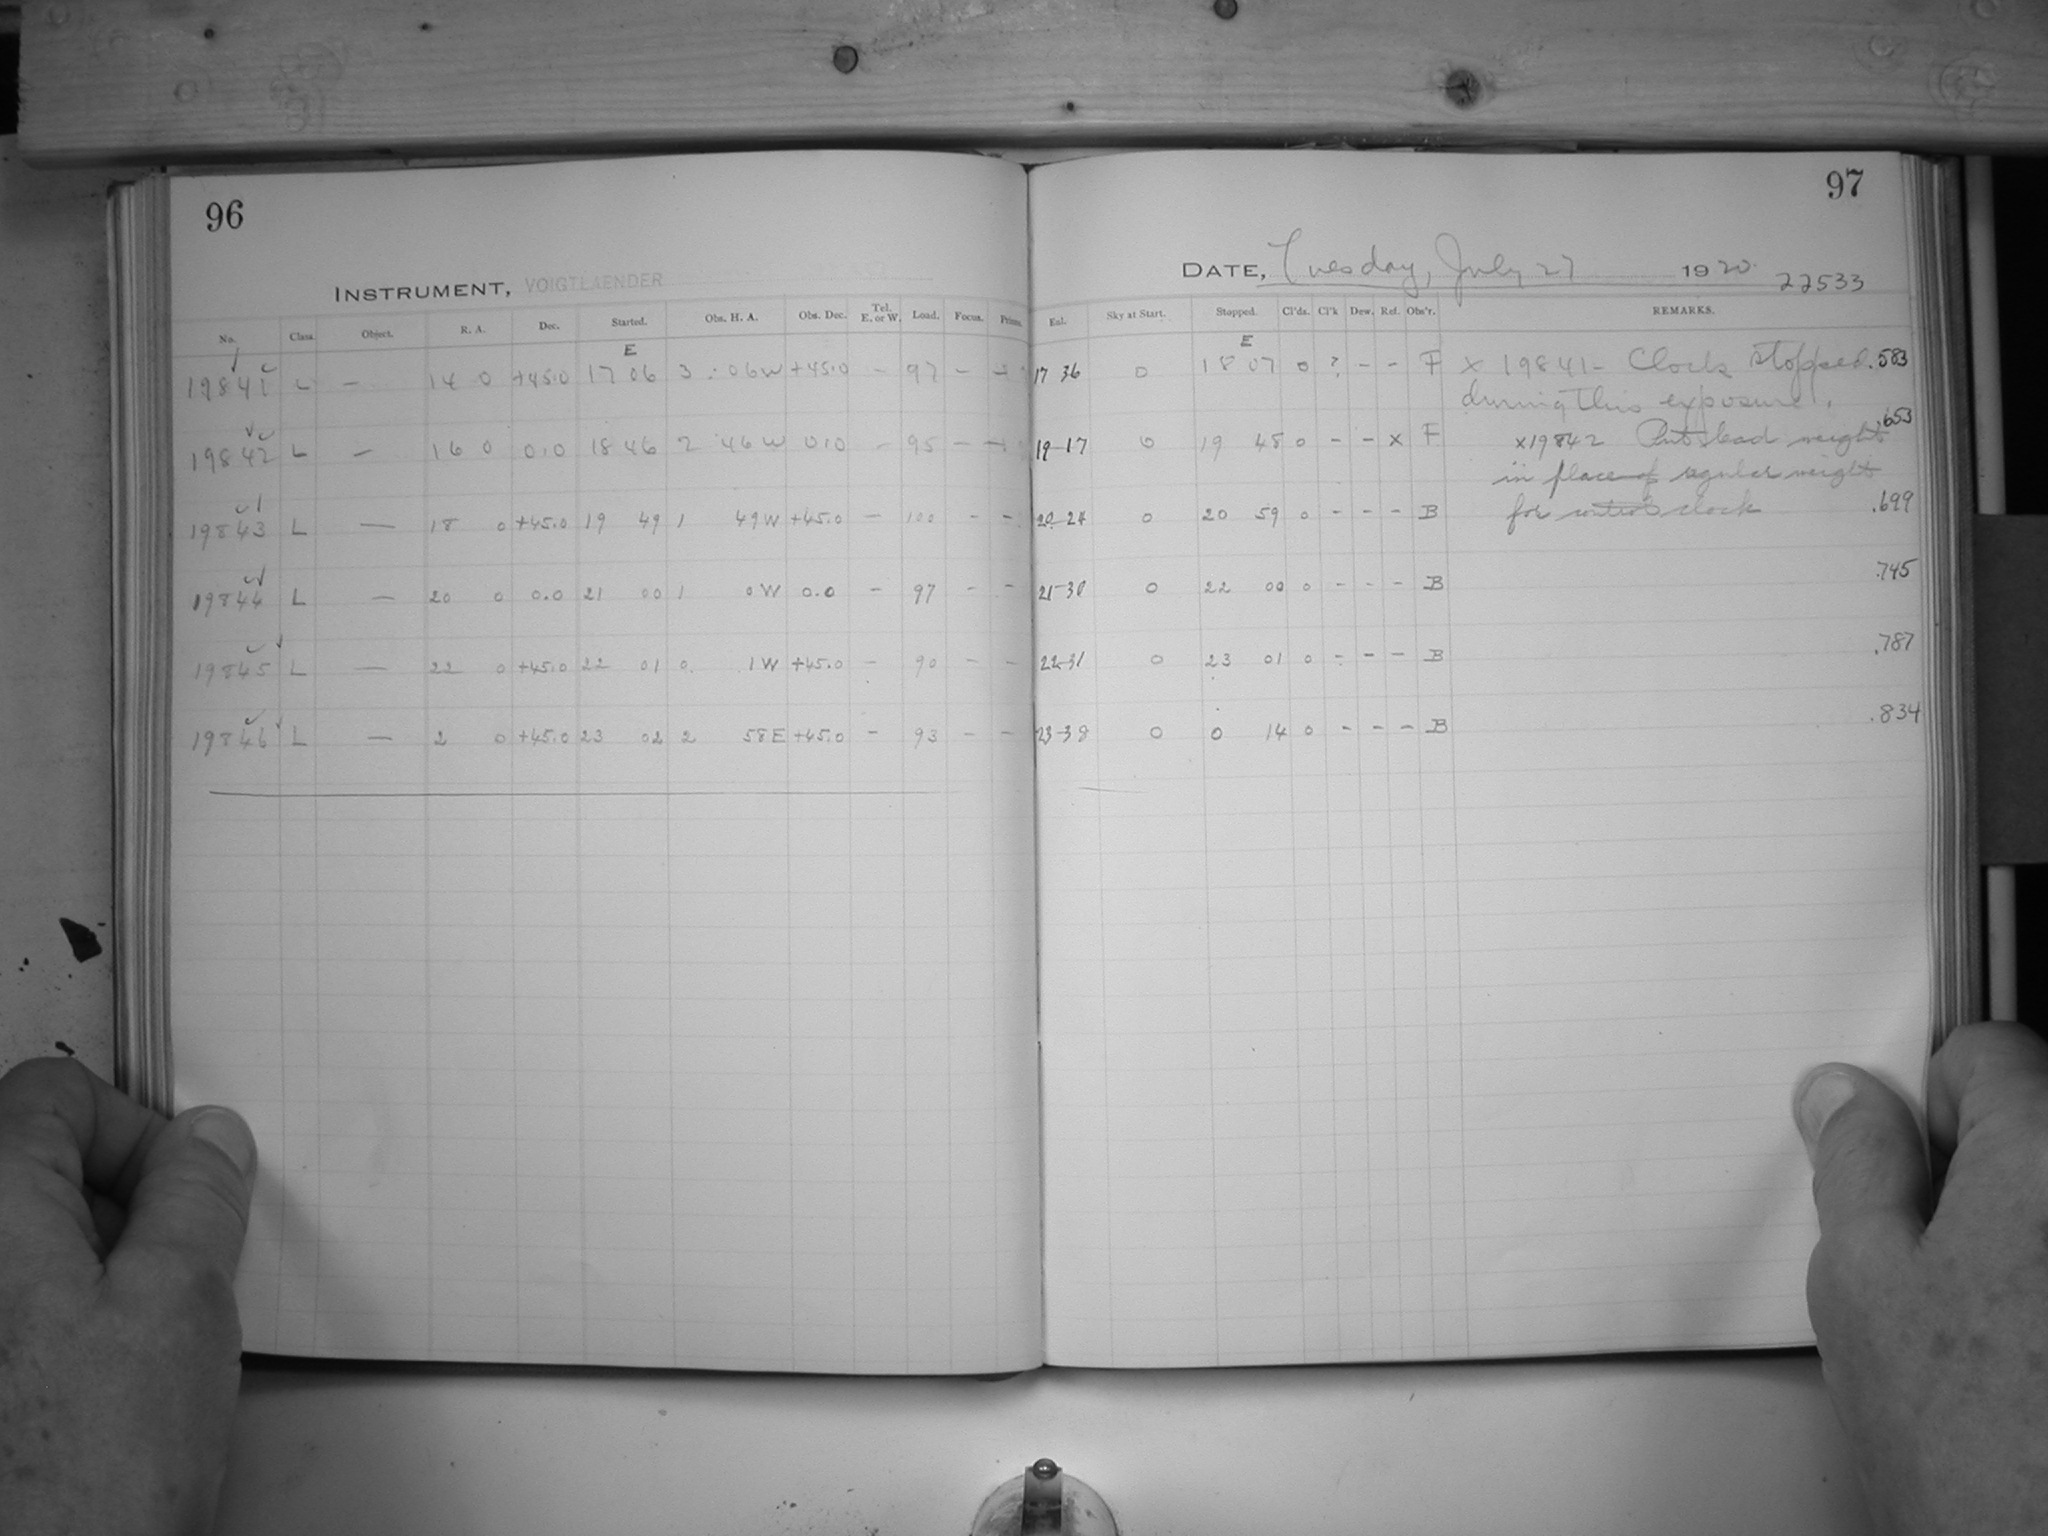 96
INSTRUMENT, VOIGTLAENDER
No. Class. Object. R. A. Dec. Started. Obs. H. A. Obs. Dec. Tel. E. or W. Load. Focus. Prisms.
E
19841 L — 14 0 +45.0 17 06 3 : 06W +45.0 - 97 - -
19842 L — 16 0 0.0 18 46 2 46 W 0.0 - 95 - -
19843 L — 18 0 +45.0 19 49 1 49W +45.0 - 100 - -
19844 L — 20 0 0.0 21 00 1 0 W 0.0 - 97 - -
19845 L — 22 0 +45.0 22 01 0. 1W +45.0 - 90 - -
19846 L — 2 0 +45.0 23 02 2 58E +45.0 - 93 - -
97
DATE, Tuesday, July 27 1920.
22533
Exl. Sky at Start. Stopped. Cl'ds. Cl'k Dew. Ref. Obs'r. REMARKS.
E
17 36 0 18 07 0 ? - - F x 19841 - Clock stopped .583
during this exposure.
.653
19-17 0 19 48 0 - - x F x19842 Put lead weight
in place of regular weight
20-24 0 20 59 0 - - - B for control clock .699
21-30 0 22 00 0 - - - B .745
22-31 0 23 01 0 - - - B .787
23-38 0 0 14 0 - - - B .834